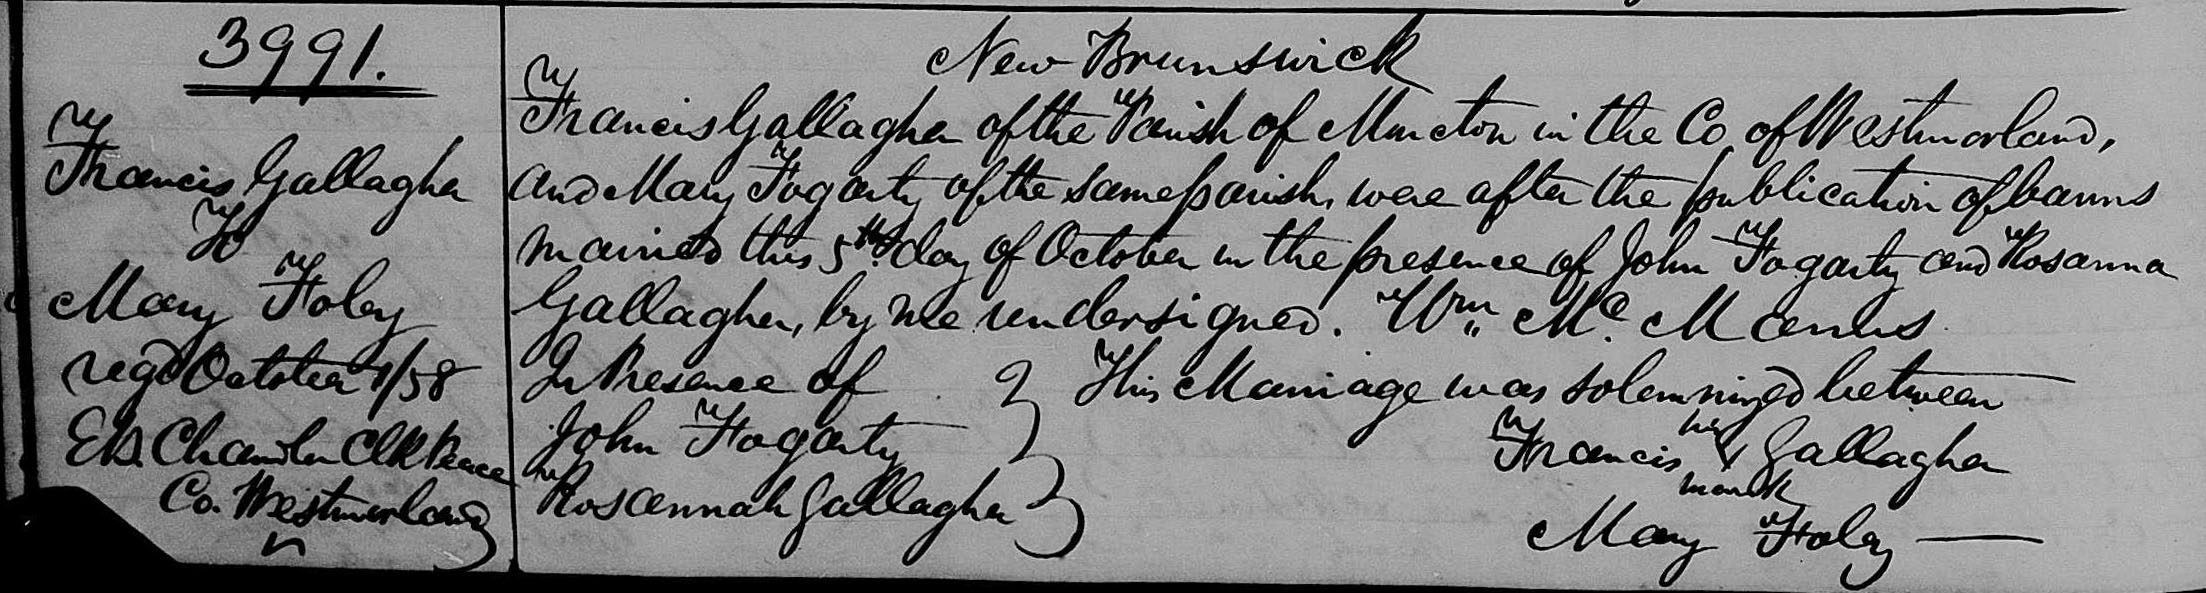 3991.
Francis Gallagher
To
Mary Foley
regd October 1/58
Ed. Chandler Clk Peace
Co. Westmorland
New Brunswick
Francis Gallagher of the Parish of Moncton in the Co. of Westmorland,
and Mary Fogarty of the same parish, were after the publication of banns
married this 5th day of October in the presence of John Fogarty and Rosanna
Gallagher, by me undersigned. Wm McManus
In Presence of
John Fogarty
Rosannah Gallagher
This Marriage was solemnized between
Francis his x mark Gallagher
Mary Foley